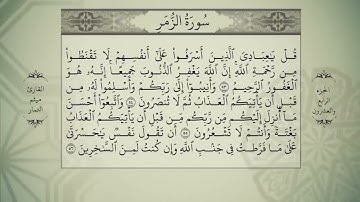 سُورَةُ الزُّمَرِ
قُلْ يَٰعِبَادِيَ ٱلَّذِينَ أَسْرَفُوا۟ عَلَىٰٓ أَنفُسِهِمْ لَا تَقْنَطُوا۟
مِن رَّحْمَةِ ٱللَّهِ إِنَّ ٱللَّهَ يَغْفِرُ ٱلذُّنُوبَ جَمِيعًا إِنَّهُۥ هُوَ
ٱلْغَفُورُ ٱلرَّحِيمُ ٥٣ وَأَنِيبُوٓا۟ إِلَىٰ رَبِّكُمْ وَأَسْلِمُوا۟ لَهُۥ مِن
قَبْلِ أَن يَأْتِيَكُمُ ٱلْعَذَابُ ثُمَّ لَا تُنصَرُونَ ٥٤ وَٱتَّبِعُوٓا۟ أَحْسَنَ
مَآ أُنزِلَ إِلَيْكُم مِّن رَّبِّكُم مِّن قَبْلِ أَن يَأْتِيَكُمُ ٱلْعَذَابُ
بَغْتَةً وَأَنتُمْ لَا تَشْعُرُونَ ٥٥ أَن تَقُولَ نَفْسٌ يَٰحَسْرَتَىٰ
عَلَىٰ مَا فَرَّطتُ فِى جَنۢبِ ٱللَّهِ وَإِن كُنتُ لَمِنَ ٱلسَّٰخِرِينَ ٥٦
الجزء
الرابع
والعشرون
القارئ
ميثم
التمار